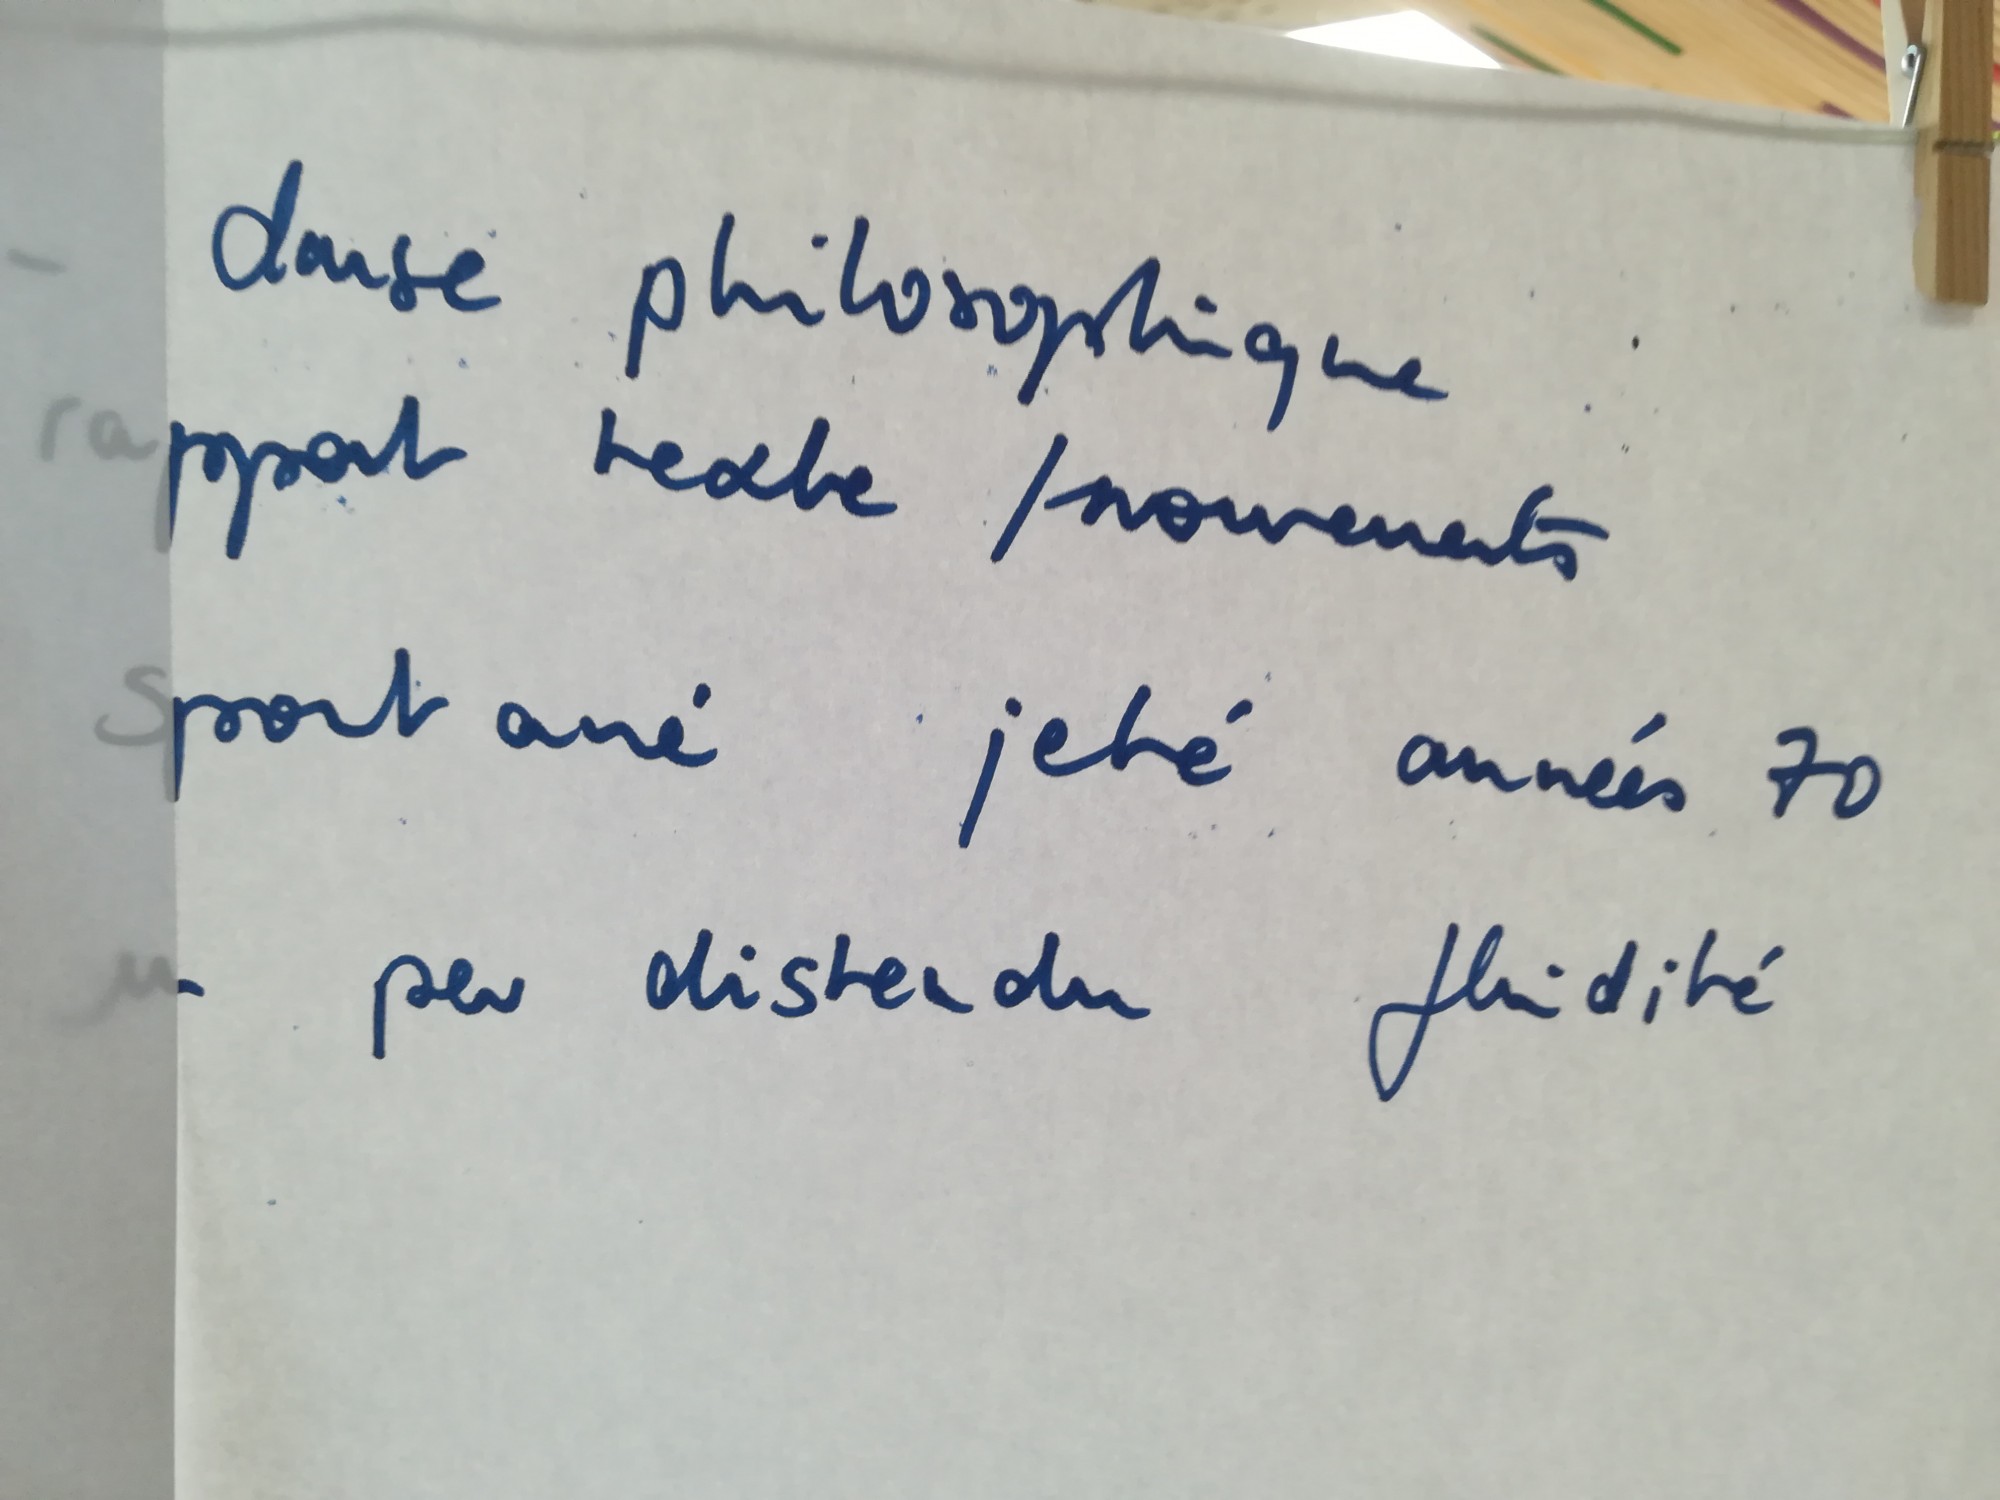 - danse philosophique
rapport texte / mouvements
spontané jeté années 70
un peu distendu fluidité